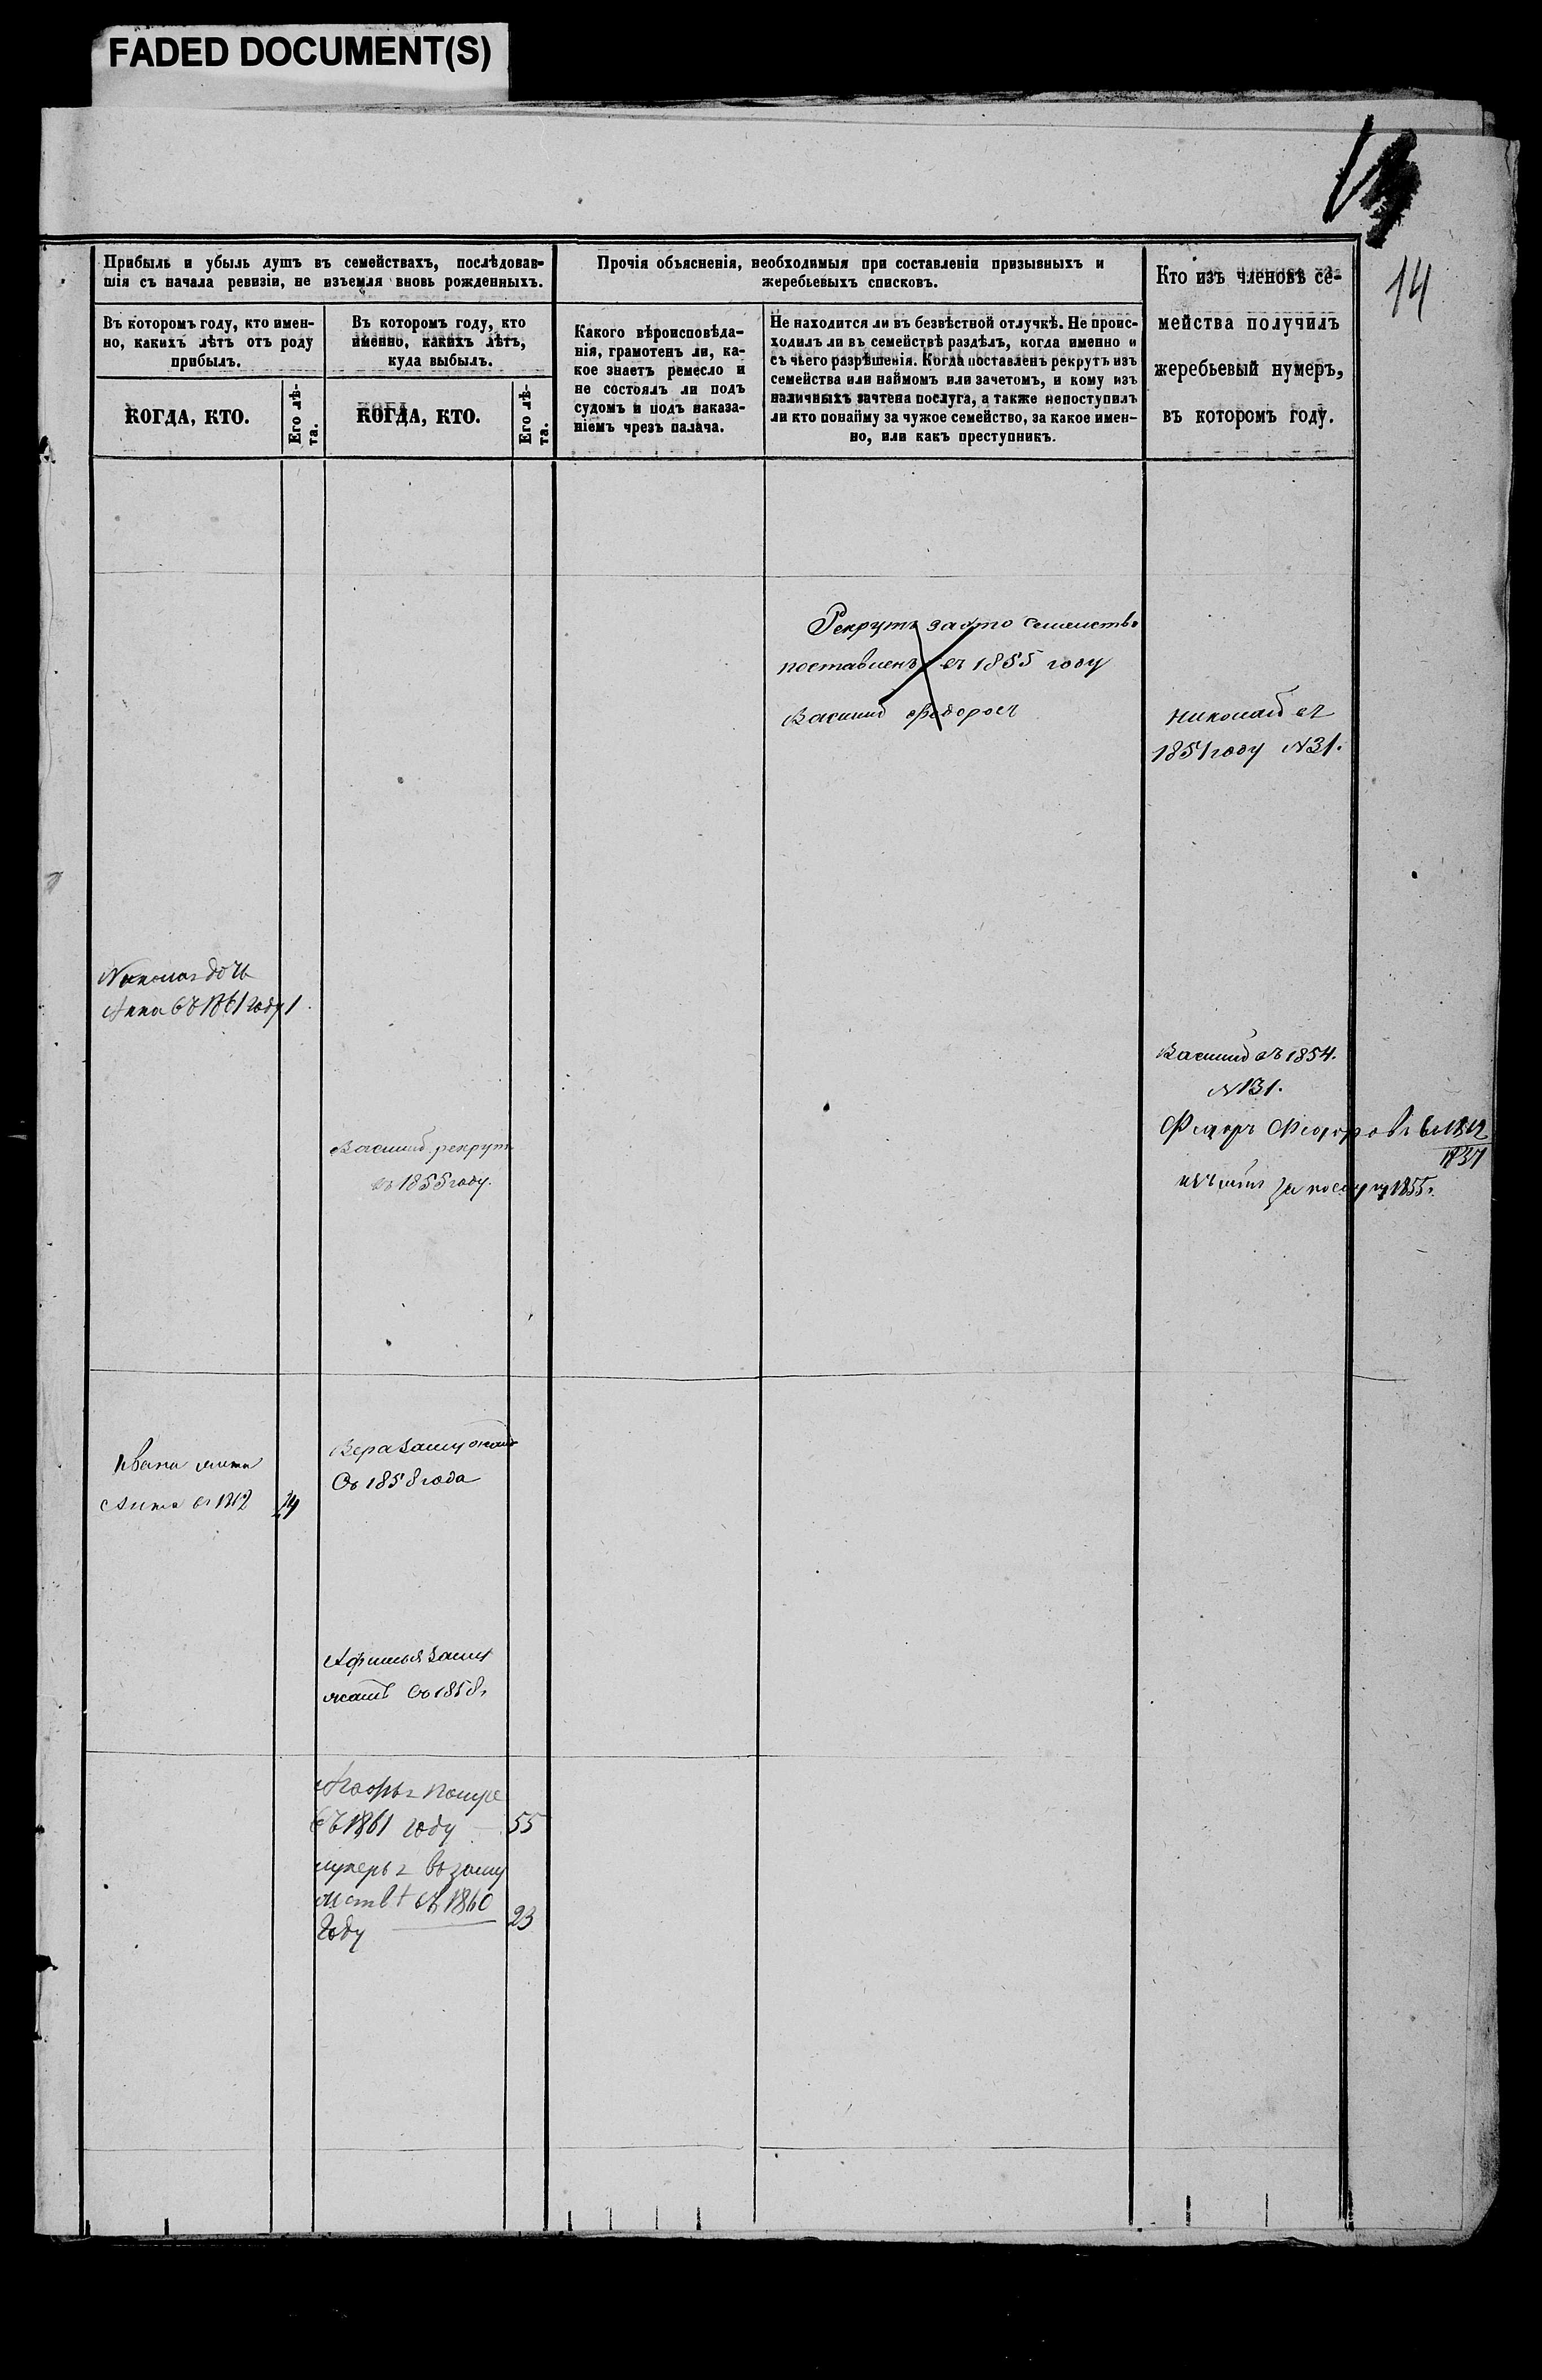 FADED DOCUMENT(S)
14
Прибыль и убыль душъ въ семействахъ, послѣдовав-
шія съ начала ревизіи, не изъемля вновь рожденныхъ.
Въ которомъ году, кто имен-
но, какихъ лѣтъ отъ роду
прибылъ.
КОГДА, КТО.
Его лѣ-
та.
Въ которомъ году, кто
именно, какихъ лѣтъ,
куда выбылъ.
КОГДА, КТО.
Его лѣ-
та.
Прочія объясненія, необходимыя при составленіи призывныхъ и
жеребьевыхъ списковъ.
Какого вѣроисповѣда-
нія, грамотенъ ли, ка-
кое знаетъ ремесло и
не состоялъ ли подъ
судомъ и подъ наказа-
ніемъ чрезъ палача.
Не находится ли въ безвѣстной отлучкѣ. Не проис-
ходилъ ли въ семействѣ раздѣлъ, когда именно и
съ чьего разрѣшенія. Когда поставленъ рекрутъ изъ
семейства или наймомъ или зачетомъ, и кому изъ
наличныхъ зачтена послуга, а также непоступилъ
ли кто понайму за чужое семейство, за какое имен-
но, или какъ преступникъ.
Кто изъ членовъ се-
мейства получилъ
жеребьевый нумеръ,
въ которомъ году.
Рекрутъ за это семейство
поставленъ въ 1855 году
Василий Федоровъ
Николай въ
1851 году N31.
дочь
Анна въ 1861 году 1
Василий въ 1854.
N131.
Василий рекрутъ
въ 1855 году.
Федоръ Федоровъ 1812
1837
за 1855
Вера замужъ
Съ 1858 года
Ивана
въ 1862 24
Афимья заму
жемъ Съ 1858
въ 1861 году 55
въ заму
жествѣ въ 1860
Году 23